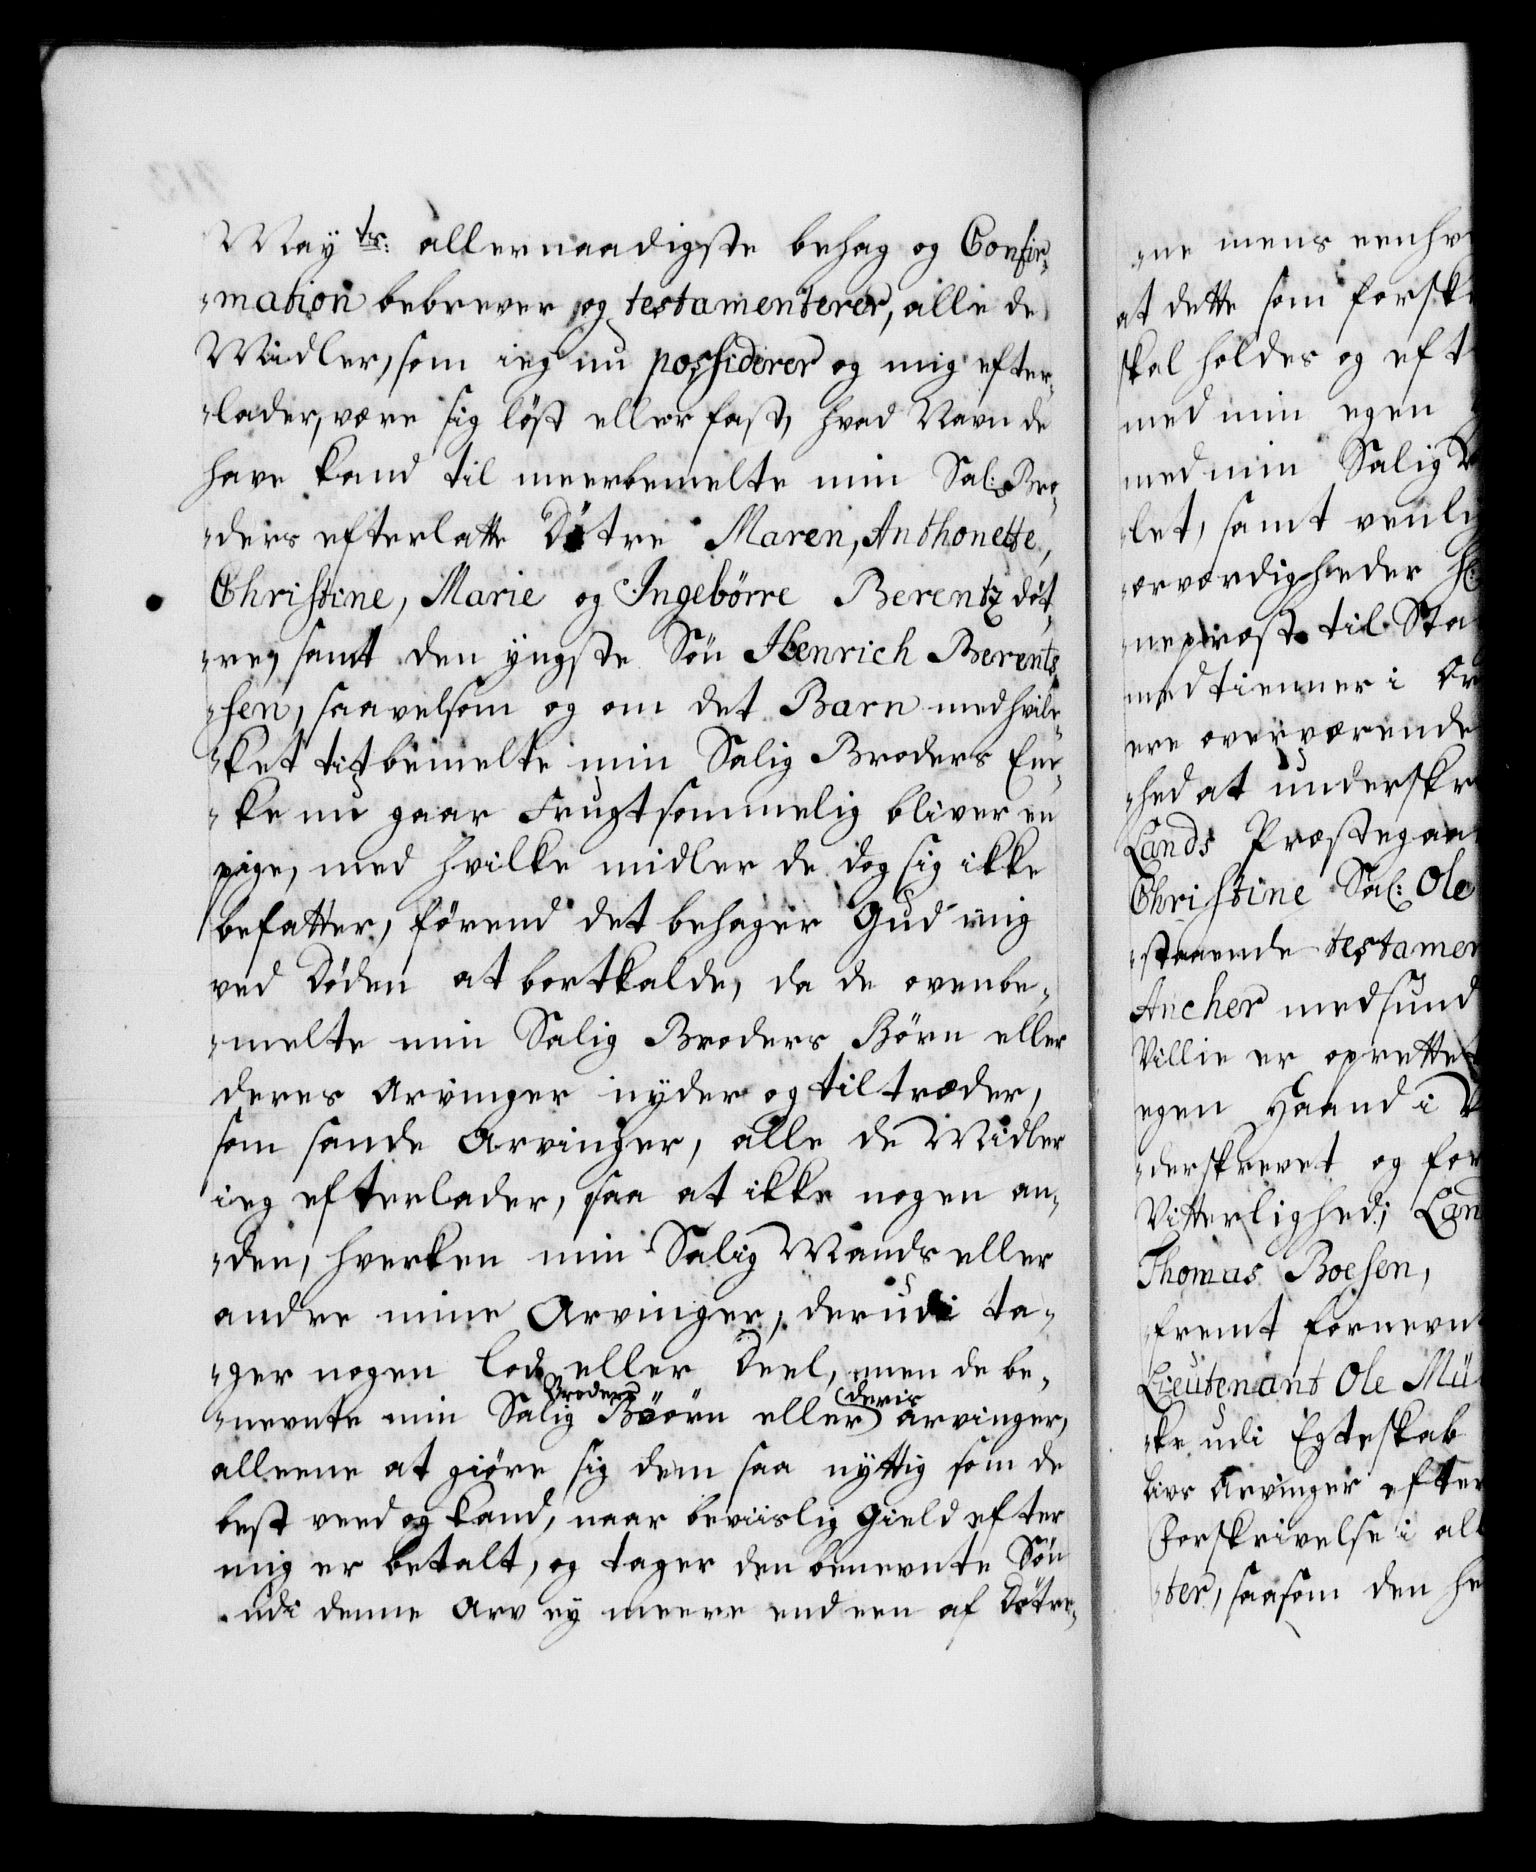 May\ts: allernaadigste behag og Confir-
-mation bebrever og testamenterer, alle de
Midler, som ieg nu possiderer og mig efter-
-lader, være sig løst eller fast, hvad Navn de
have kand til meerbemelte min Sal: Bro-
-ders efterlatte Døttre Maren, Anthonette,
Christine, Marie og Ingebörre Berentz døt-
-re, samt den yngste Søn Henrich Berents-
-sen, saavelsom og om det Barn med hvil-
-ket titbemelte min Salig Broders Enc-
-ke nu gaar Frugtsommelig bliver en
pige, med hvilke midler de dog sig ikke
befatter, førend det behager Gud mig
ved Døden at bortkalde, da de ovenbe-
-melte min Salig Broders Børn eller
deres Arvinger nyder og tiltræder,
som sande Arvinger, alle de Midler
ieg efterlader, saa at ikke nogen an-
-den, hverken min Salig Mands eller
andre mine Arvinger, derudi ta-
-ger nogen lod eller Deel, men de be-
-nevnte min Salig Broders Böörn eller deris arvinger,
alleene at giøre sig dem saa nyttig som de
best veed og kand, naar beviislig Gield efter
mig er betalt, og tager den benevnte Søn
udi denne Arv ey meere end een af Døtre-
-ne mens eenhv
at dette som forsk
skal holdes og eft
med min egen
med min Salig
-let, samt venlig
-ærværdigheder H:
-neprost til Sta
medtienner i Or
ere overværende
-hed at underskr
Lands Præstegaa
Christine Sal: Ole
-staaende testamen
Ancher med sund
Villie er oprettet
egen Haand i
-derskrevet og for
Vitterlighed; Lan
Thomas Boesen,
-fremt fornevnt
Lieutenant Ole Mü
-ke udi Egteskab
livs Arvinger efter
Forskrivelse i all
-ter, saasom den he